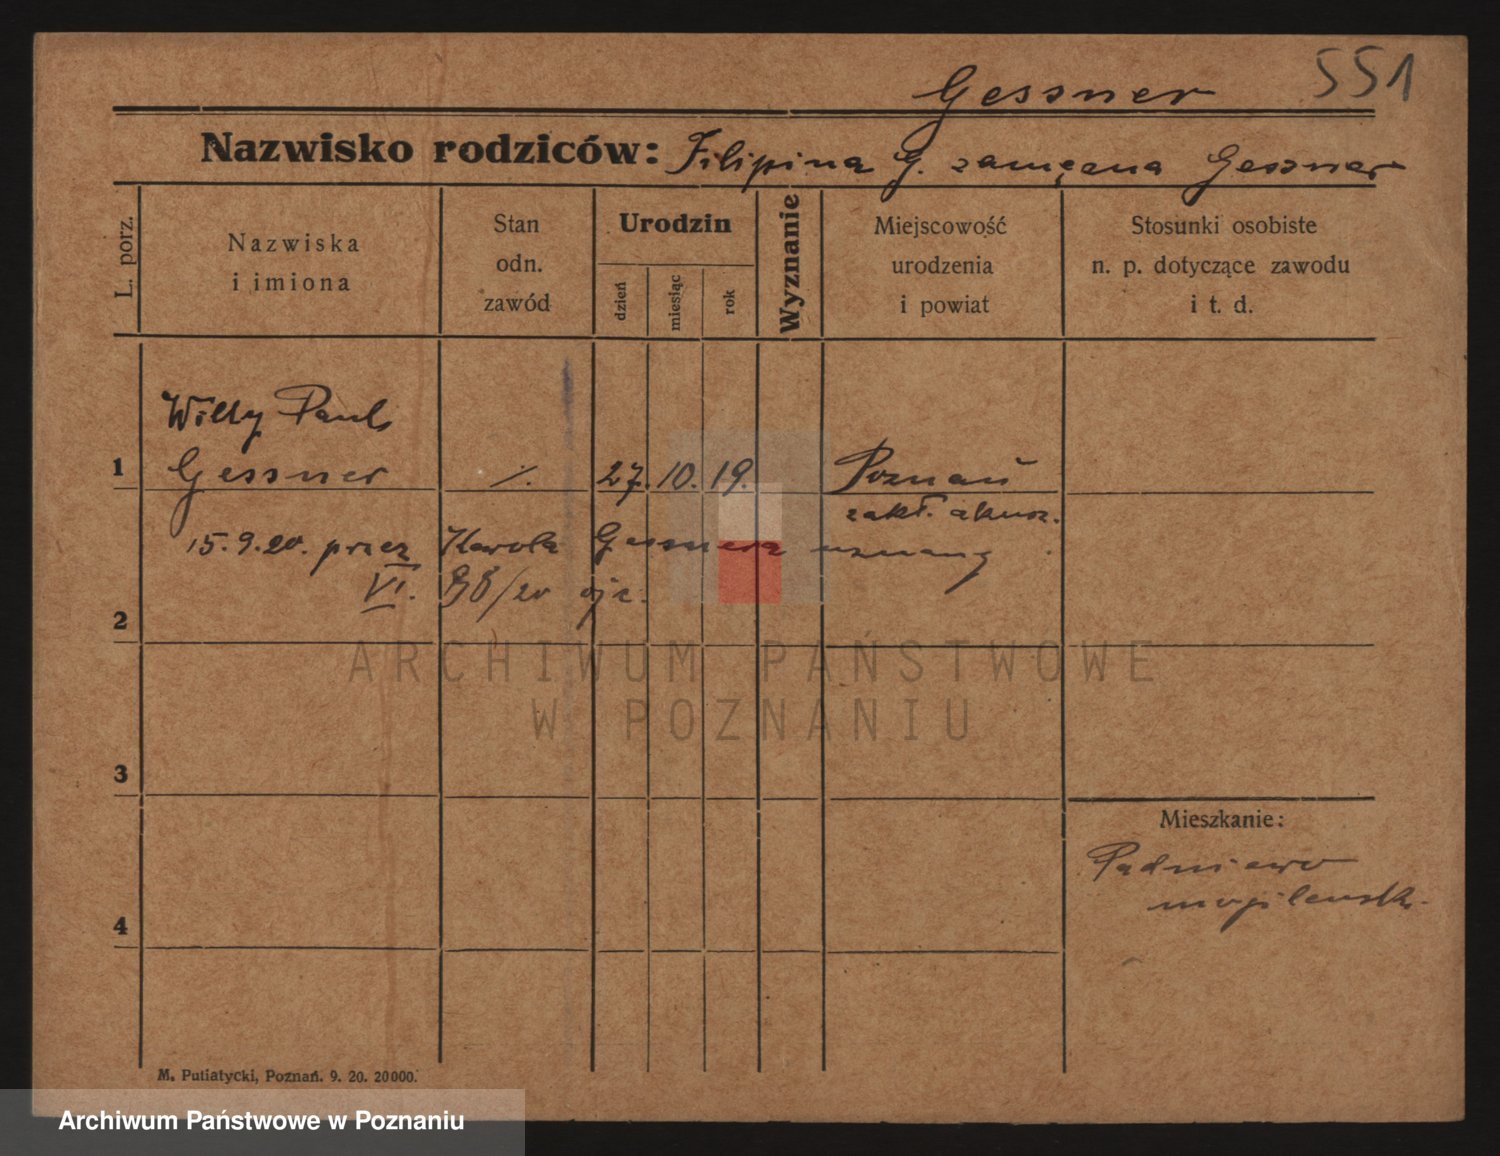 551
Gessner
Nazwisko rodziców: Filipina G. zamężna Gessner
L. porz.
Nazwiska
i imiona
Stan
odn.
zawód
Urodzin
dzień
miesiąc
rok
Wyznanie
Miejscowość
urodzenia
i powiat
Stosunki osobiste
n. p. dotyczące zawodu
i t. d.
Willy Paul
1 Gessner ./. 27. 10. 19. Poznań
zakł. akusz.
15.9.20. przez Karola Gessnera uznany
VI. 98/20
2
ARCHIWUM PAŃSTWOWE
W POZNANIU
3
Mieszkanie:
Padniewo
mogilewsk.
4
M. Putiatycki, Poznań. 9. 20. 20000.
Archiwum Państwowe w Poznaniu